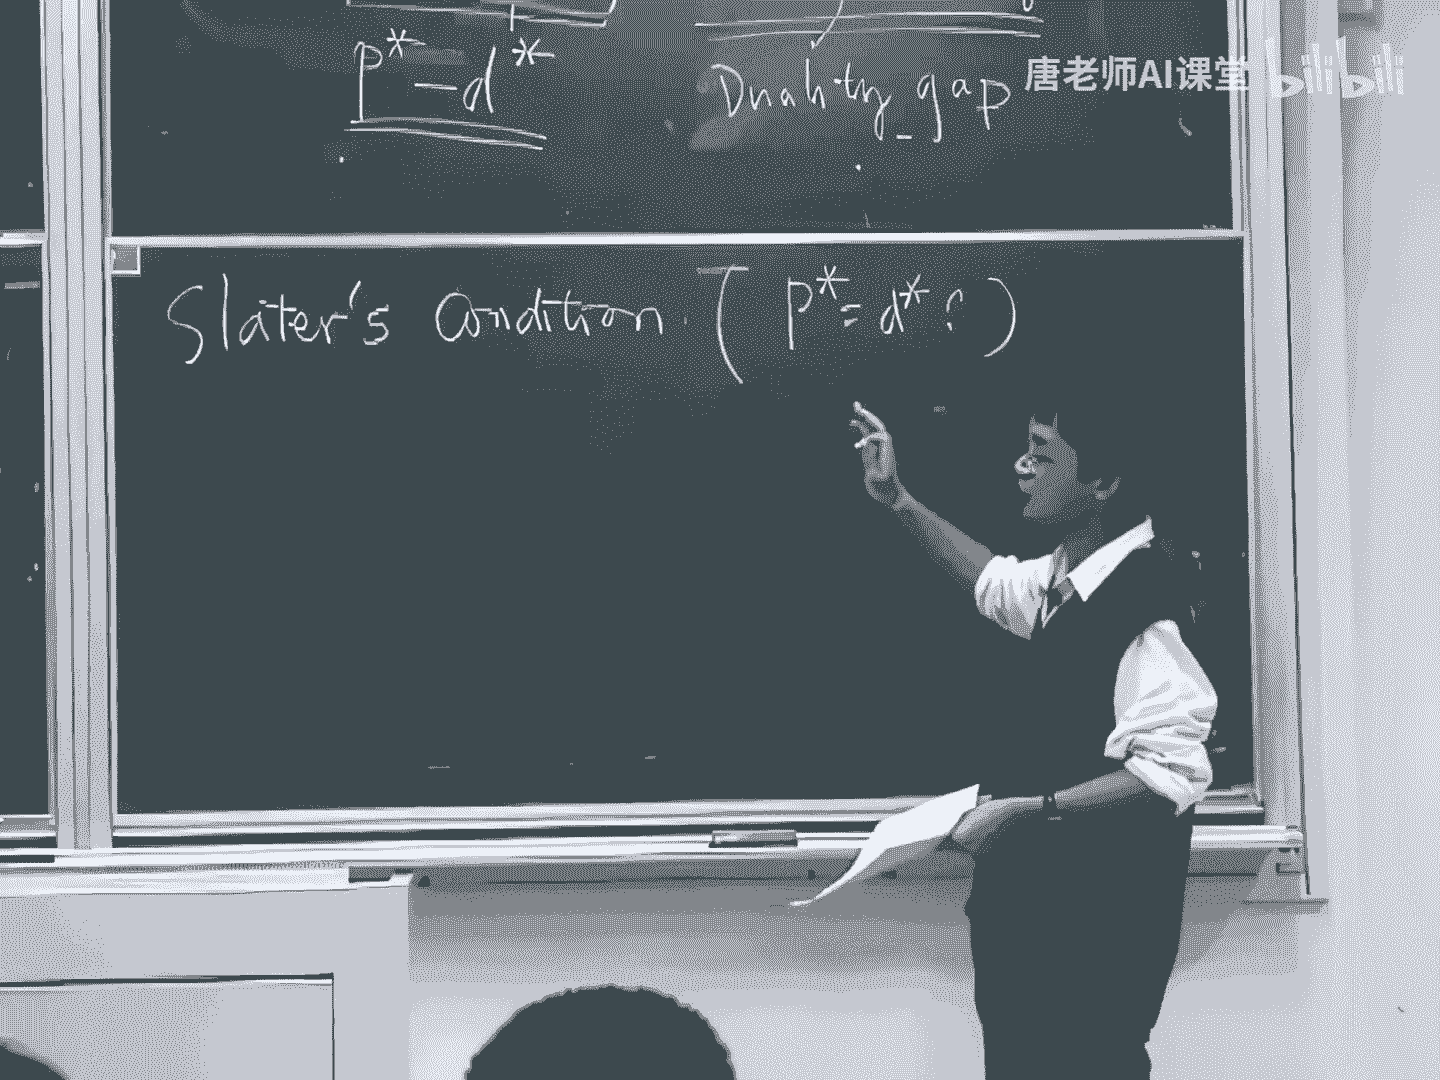 P* - d* Duality gap
唐老师AI课堂 bilibili
Slater's Condition (P* = d* ?)